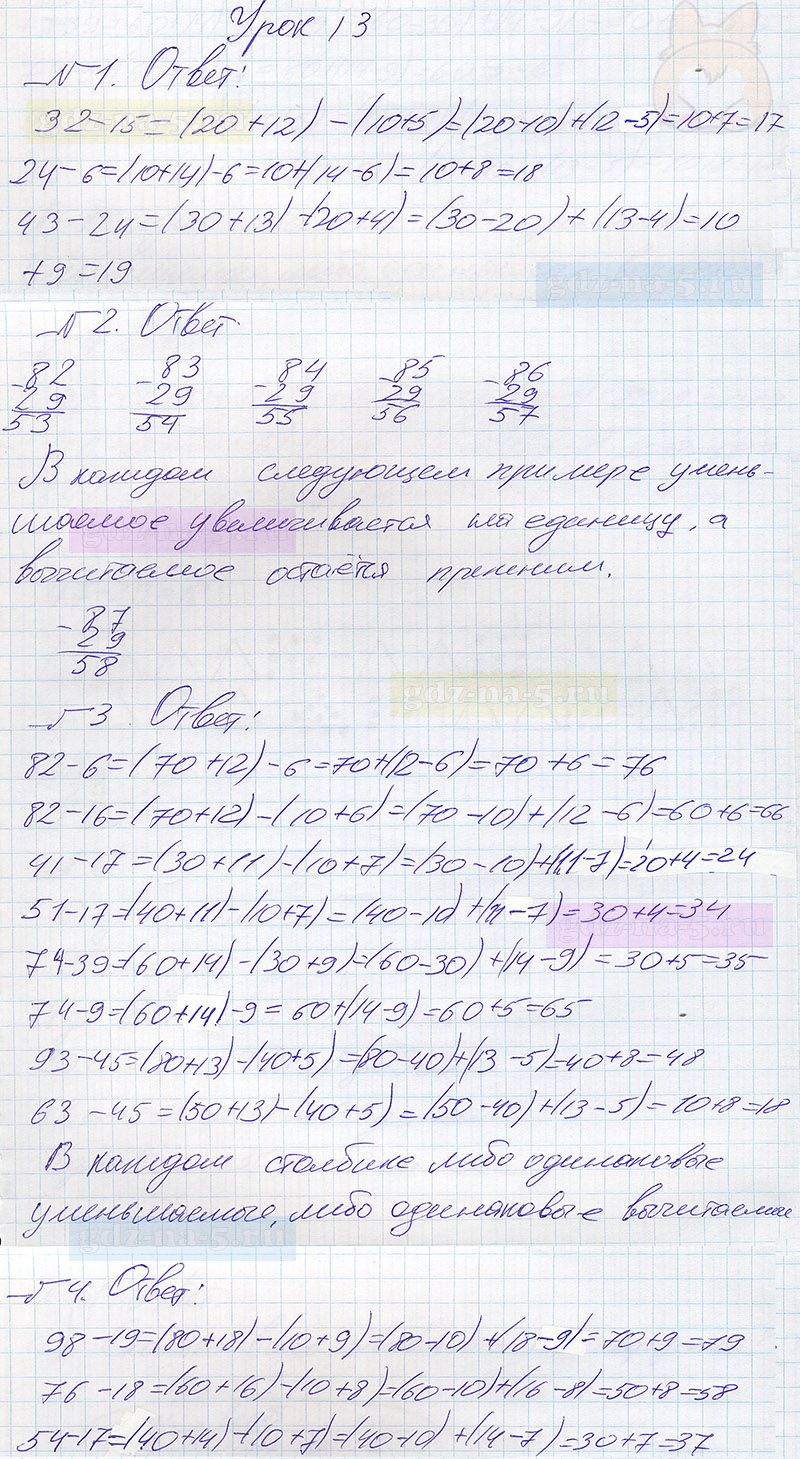 Урок 13
№1. Ответ:
32-15=(20+12)-(10+5)=(20-10)+(12-5)=10+7=17
24-6=(10+14)-6=10+(14-6)=10+8=18
43-24=(30+13)-(20+4)=(30-20)+(13-4)=10
+9=19
gdz-na-5.ru
№2. Ответ
-82 -83 -84 -85 -86
29 29 29 29 29
53 54 55 56 57
В каждом следующем примере умень-
шаемое увеличивается на единицу, а
вычитаемое остаётся прежним.
-87
29
58
gdz-na-5.ru
№3 Ответ:
82-6=(70+12)-6=70+(12-6)=70+6=76
82-16=(70+12)-(10+6)=(70-10)+(12-6)=60+6=66
41-17=(30+11)-(10+7)=(30-10)+(11-7)=20+4=24
51-17=(40+11)-(10+7)=(40-10)+(11-7)=30+4=34
gdz-na-5.ru
74-39=(60+14)-(30+9)=(60-30)+(14-9)=30+5=35
74-9=(60+14)-9=60+(14-9)=60+5=65
93-45=(80+13)-(40+5)=(80-40)+(13-5)=40+8=48
63-45=(50+13)-(40+5)=(50-40)+(13-5)=10+8=18
В каждом столбике либо одинаковые
уменьшаемые, либо одинаковые вычитаемые
gdz-na-5.ru
№4. Ответ:
98-19=(80+18)-(10+9)=(80-10)+(18-9)=70+9=79
76-18=(60+16)-(10+8)=(60-10)+(16-8)=50+8=58
54-17=(40+14)-(10+7)=(40-10)+(14-7)=30+7=37